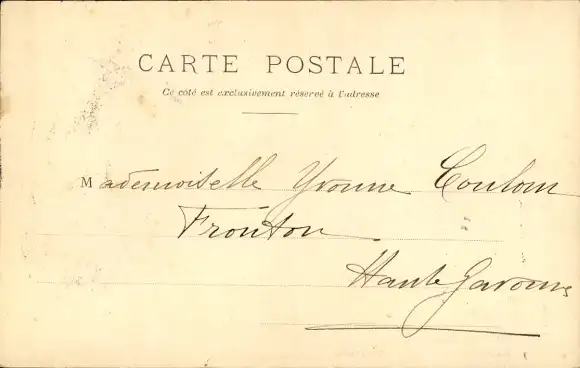 CARTE POSTALE
Ce côté est exclusivement réservé à l'adresse
Mademoiselle Yvonne Coulom
Fronton
Haute Garonne